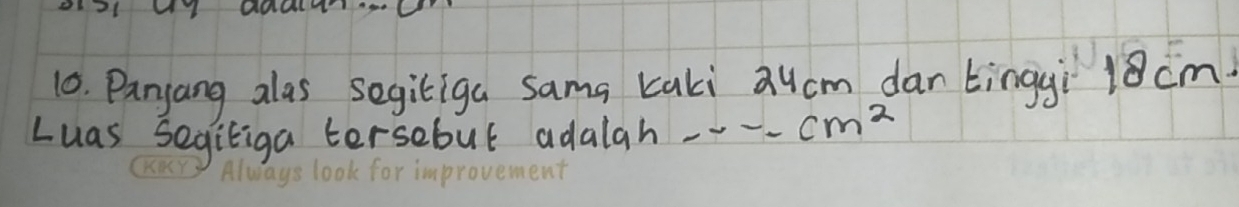 10. Panjang alas segitiga sama kaki 24cm dan tinggi 18cm.
Luas segitiga tersebut adalah ----- cm²
KIKY Always look for improvement